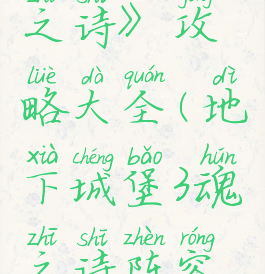 之诗》攻
lüè dà quán dì
略大全(地
xià chéng bǎo hún
下城堡3魂
zhī shī zhèn róng
之诗阵容